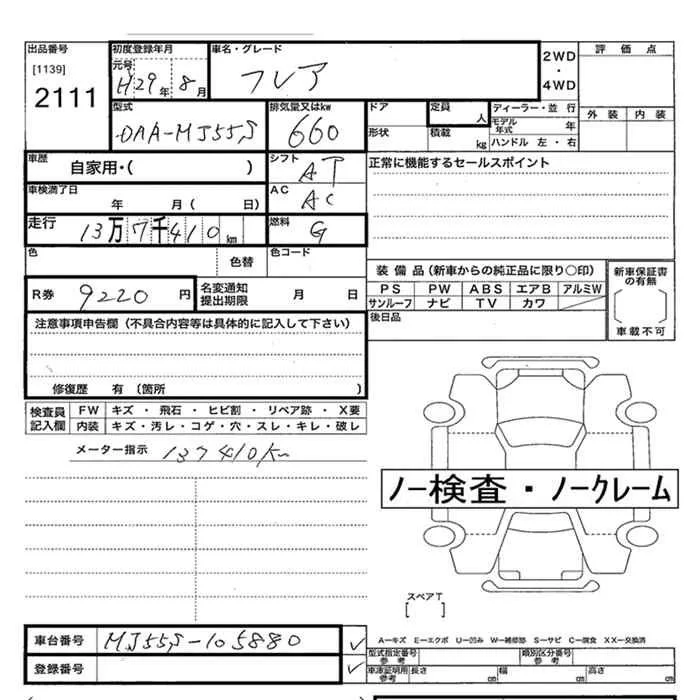 出品番号
[1139]
2111
初度登録年月
元号
H29年 8月
車名・グレード
フレア
2WD
・
4WD
評価点
外装 内装
型式
DAA-MJ55S
排気量又はkw
660
ドア
形状
定員
人
積載
kg
ディーラー・並 行
モデル年式 年
ハンドル 左・右
車歴
自家用・( )
シフト
AT
正常に機能するセールスポイント
車検満了日
年 月( 日)
AC
AC
走行
13万7千410km
燃料
G
色
色替
色コード
装備品(新車からの純正品に限り○印)
PS PW ABS エアB アルミW
サンルーフ ナビ TV カワ
新車保証書の有無
車載不可
R券 9220円
名変通知
提出期限
月 日
後日品
注意事項申告欄(不具合内容等は具体的に記入して下さい)
修復歴 有(箇所 )
検査員記入欄
FW キズ・飛石・ヒビ割・リペア跡・X要
内装 キズ・汚レ・コゲ・穴・スレ・キレ・破レ
メーター指示 137410Km
ノー検査・ノークレーム
スペアT
[ ]
車台番号 MJ55S-105880
A-キズ E-エクボ U-凹み W-補修跡 S-サビ C-腐食 XX-交換済
型式指定番号
参考
類別区分番号
参考
登録番号
車庫証明用
参考
長さ cm 幅 cm 高さ cm